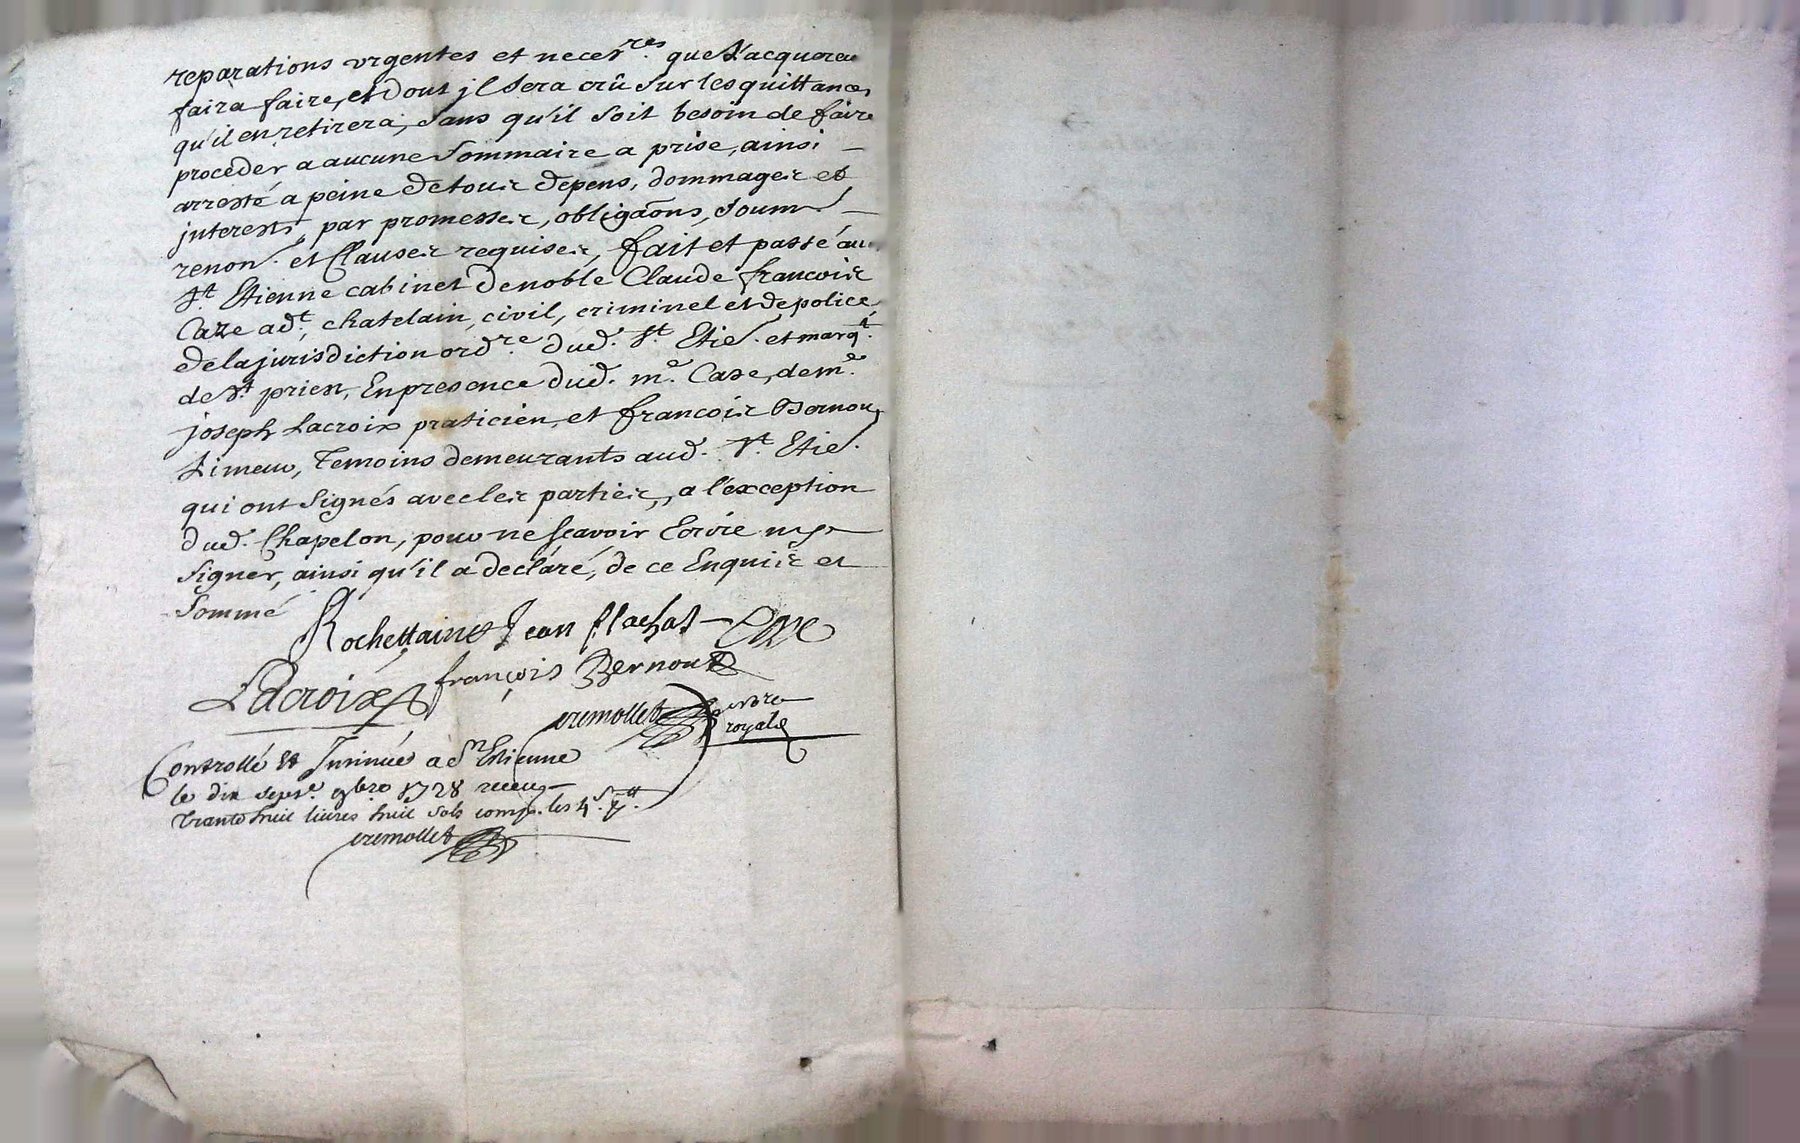 reparations urgentes et necess.res que L'acquereu
faira faire, et dont jl sera crû sur les quittances
qu'il en retirera, sans qu'il soit besoin de faire
proceder a aucune sommaire a prise, ainsi
arresté a peine de tous depens, dommages et
jnterests, par promesses, obligãons, soumi.
renon.et Clauses requises, fait et passé au.
St. Etienne cabinet de noble Claude francois
Caze adt., chatelain, civil, criminel et de police
de la jurisdiction ordre. dud. St. Etie. et marqt.
de St. priest, En presence dud. me. Caze, de me.
joseph Lacroix praticien, et francois Bernou
Limeur, temoins demeurants aud. St. Etie.
qui ont signés avec les parties, a l'exception
dud. Chapelon, pour ne sçavoir Ecrire ny
signer, ainsi qu'il a declaré, de ce Enquis et
sommé
Rochettaine Jean flachat Caze
Lacroix françois Bernou
cremollet nore
royal
Controllé et Insinué a St Etienne
le dix sept.e 9bre 1728 receu
trante huit livres huit sols comp. les 4 s. p. tt.
cremollet